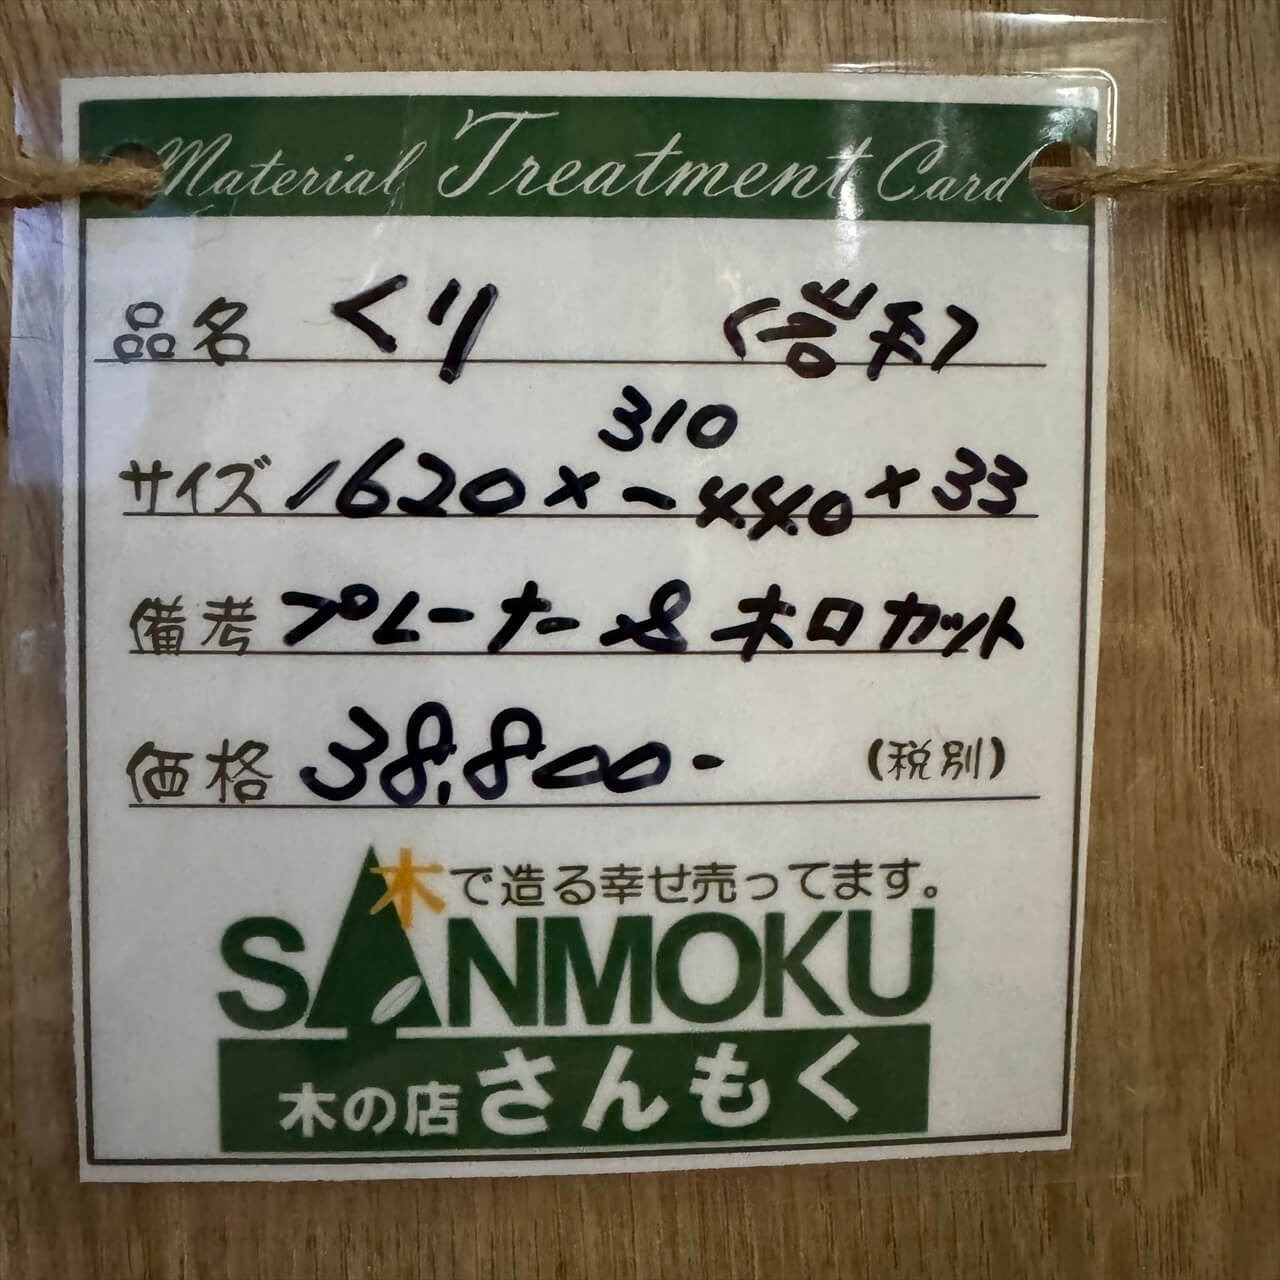 Material Treatment Card
品名 くり (岩手)
310
サイズ 1620×~440×33
備考 プレーナー&ホロカット
価格 38,800- (税別)
木で造る幸せ売ってます。
SANMOKU
木の店さんもく